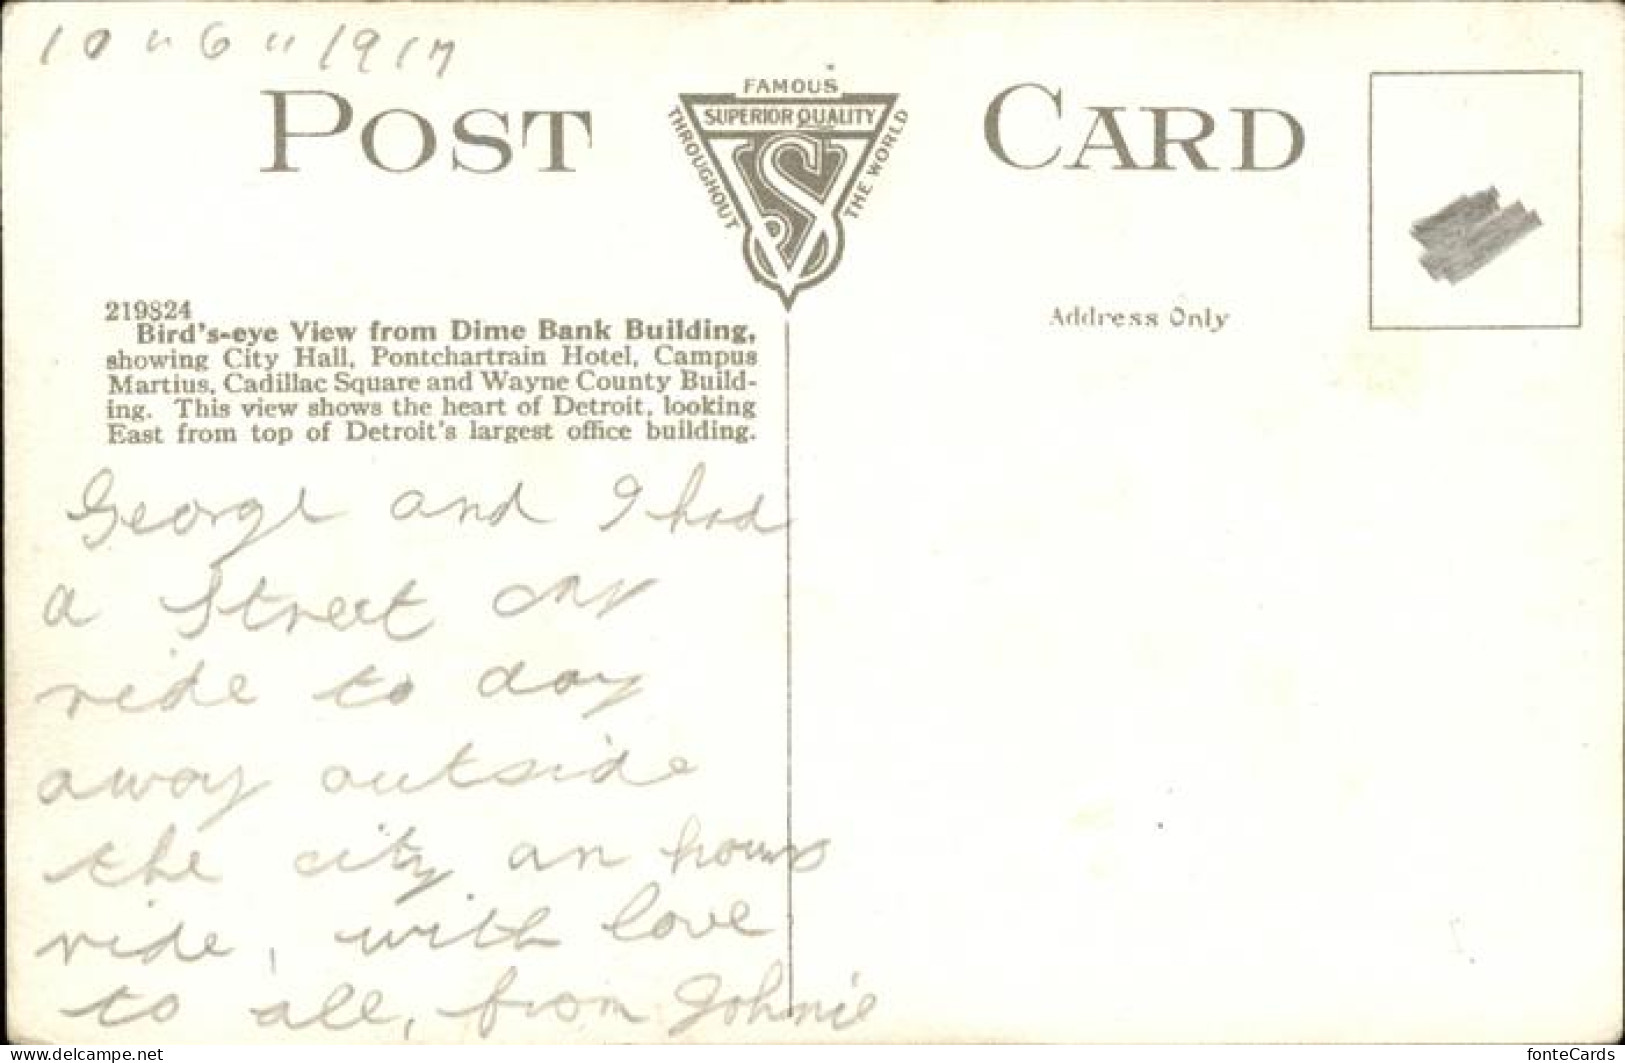 10 " 6 " 1917
POST CARD
FAMOUS
SUPERIOR QUALITY
THROUGHOUT
THE WORLD
VS
219824
Bird's-eye View from Dime Bank Building,
showing City Hall, Pontchartrain Hotel, Campus
Martius, Cadillac Square and Wayne County Build-
ing. This view shows the heart of Detroit, looking
East from top of Detroit's largest office building.
Address Only
George and I had
a street car
ride to day
away outside
the city an hours
ride, with love
to all, from Johnie
www.delcampe.net
fonteCards